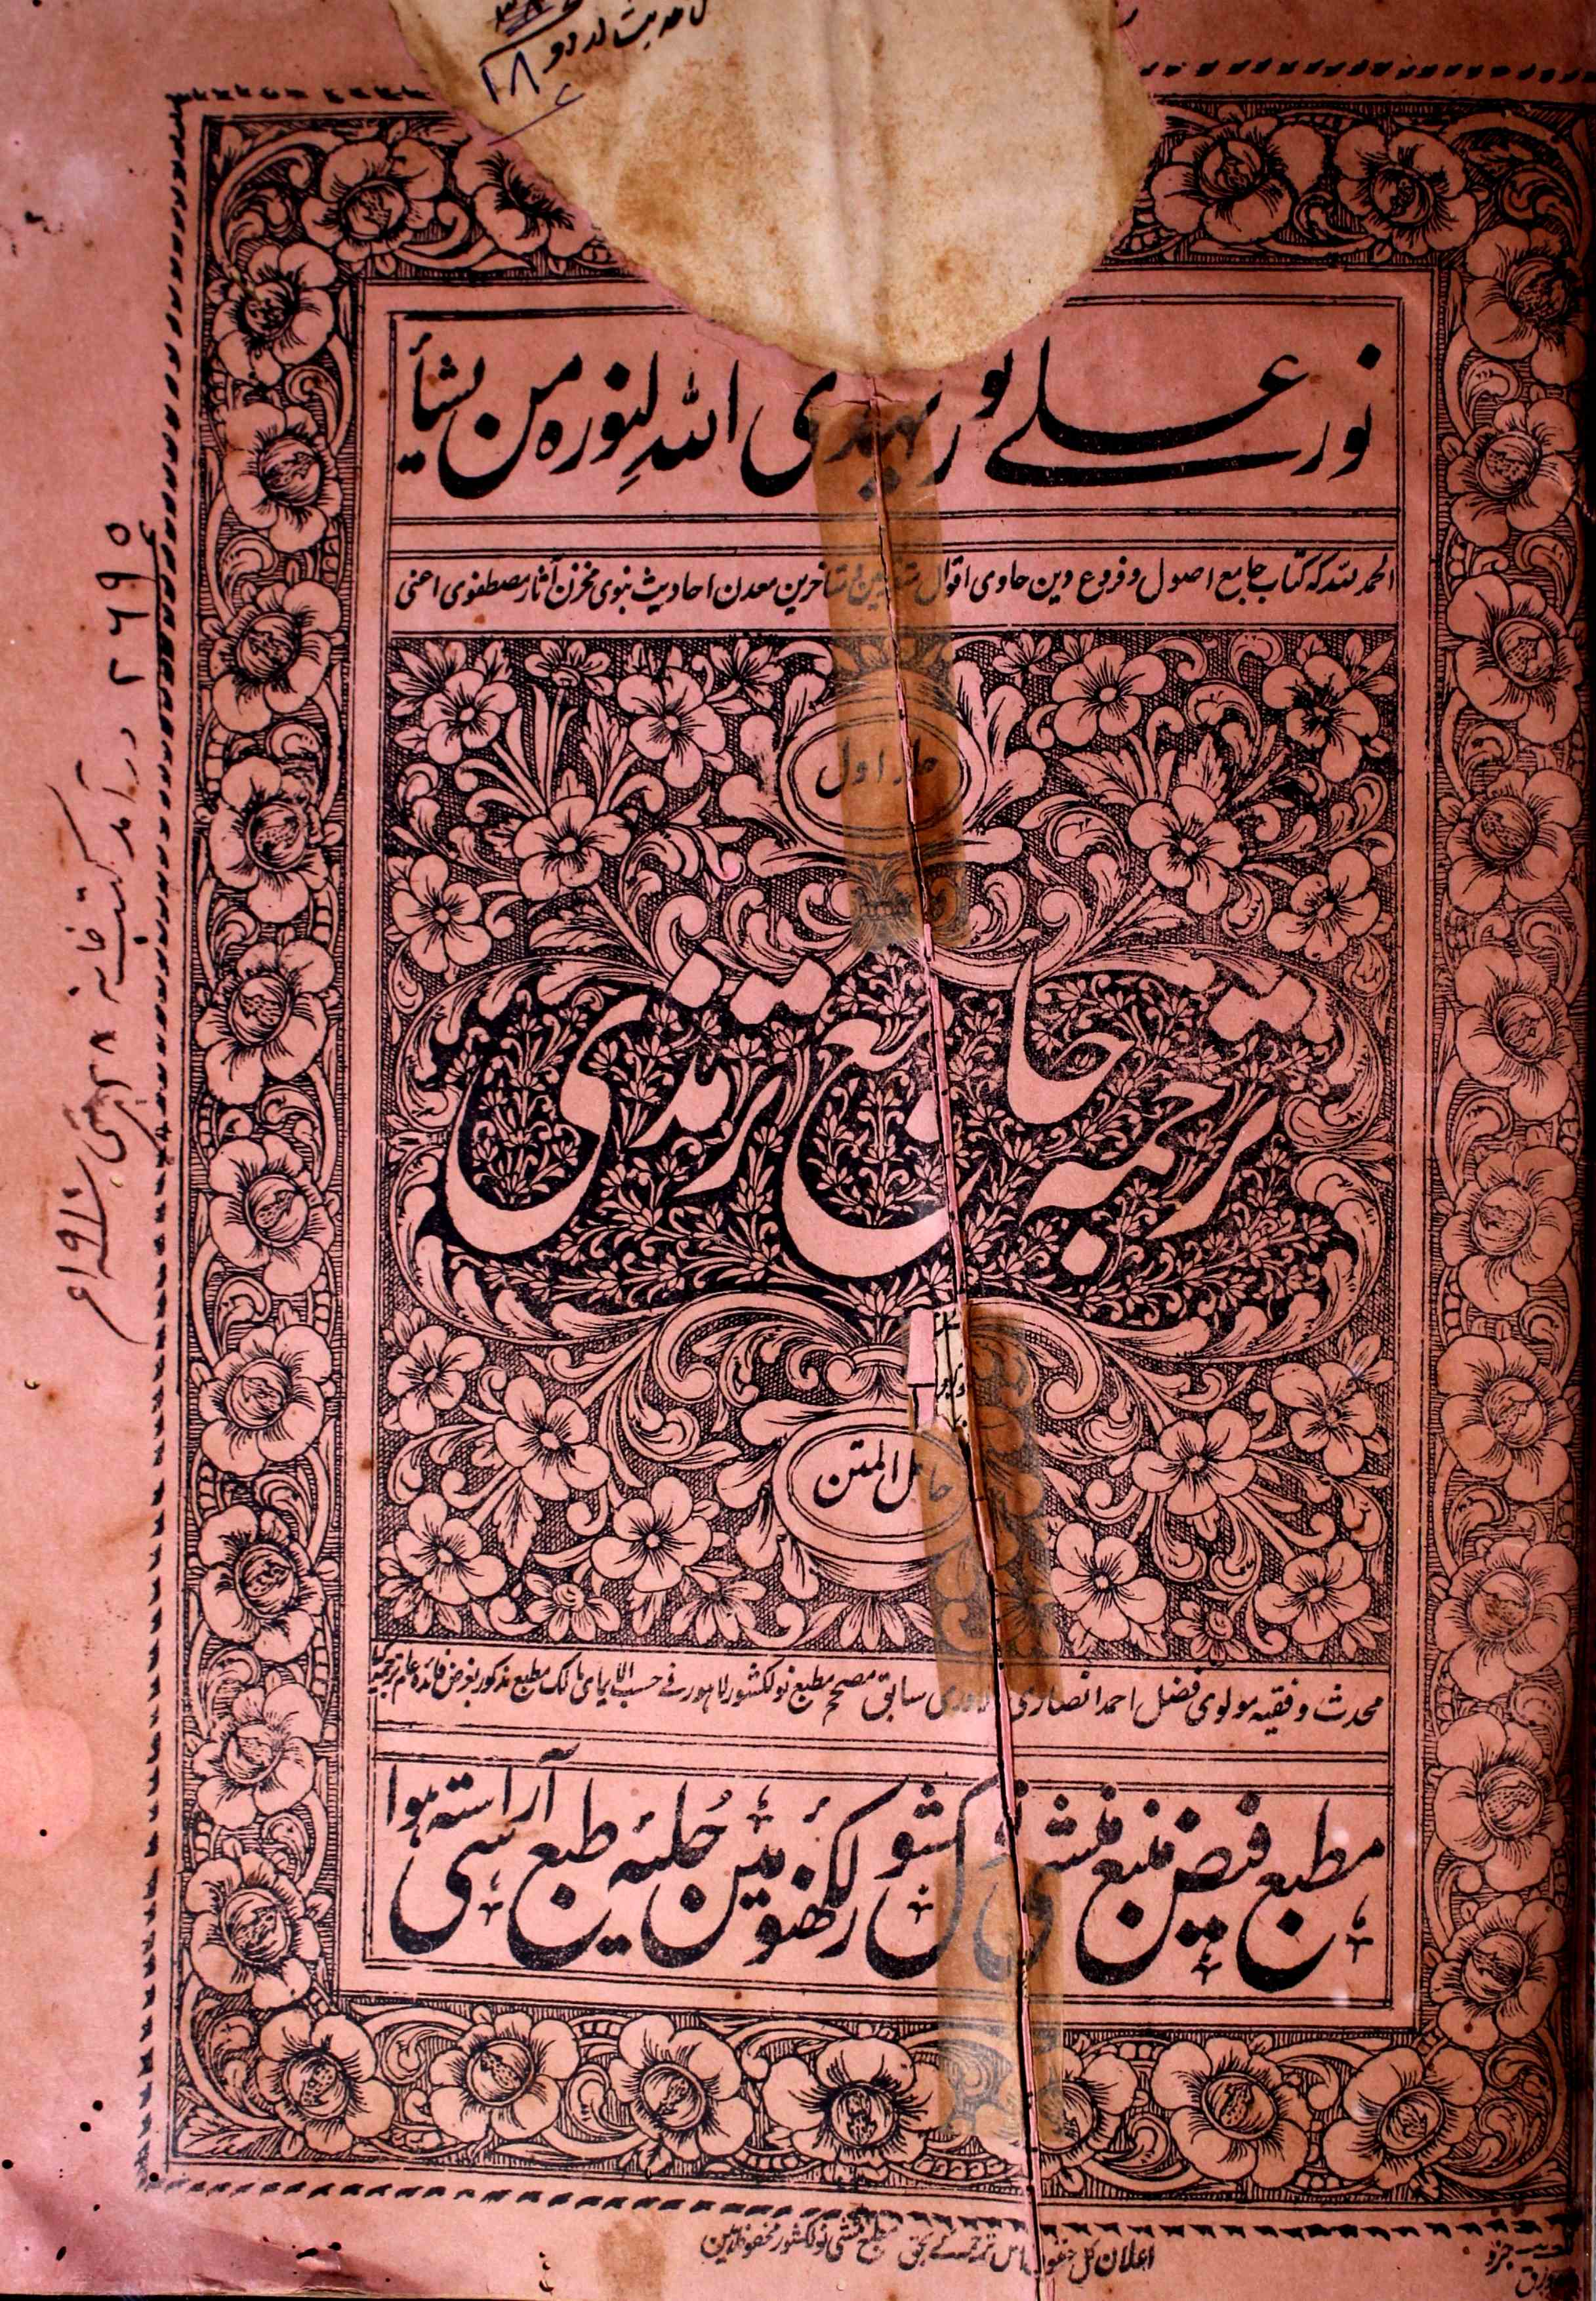 حدیث اردو
۱۸
نور علے نور یہدی اللہ لنورہ من یشأ
الحمد للہ کہ کتاب جامع اصول و فروع دین حاوی اقوال متقدمین و متاخرین معدن احادیث نبوی مخزن آثار مصطفوی اعنی
جلد اول
ترجمہ جامع ترمذی
حامل المتن
محدث و فقیہ مولوی فضل احمد انصاری لاوری سابق مصحح مطبع نولکشور لاہور نے حسب الایمای مالک مطبع مذکور بغرض فائدہ عام ترجمہ کیا
مطبع فیض منبع منشی نولکشور لکھنؤ مین حلیۂ طبع سے آراستہ ہوا
اعلان کل حقوق اس ترجمہ کے بحق مطبع منشی نولکشور محفوظ ہین
۲۶۹۵ درآمد کتب خانہ ۲۸ مئی ۱۹۱۰ء